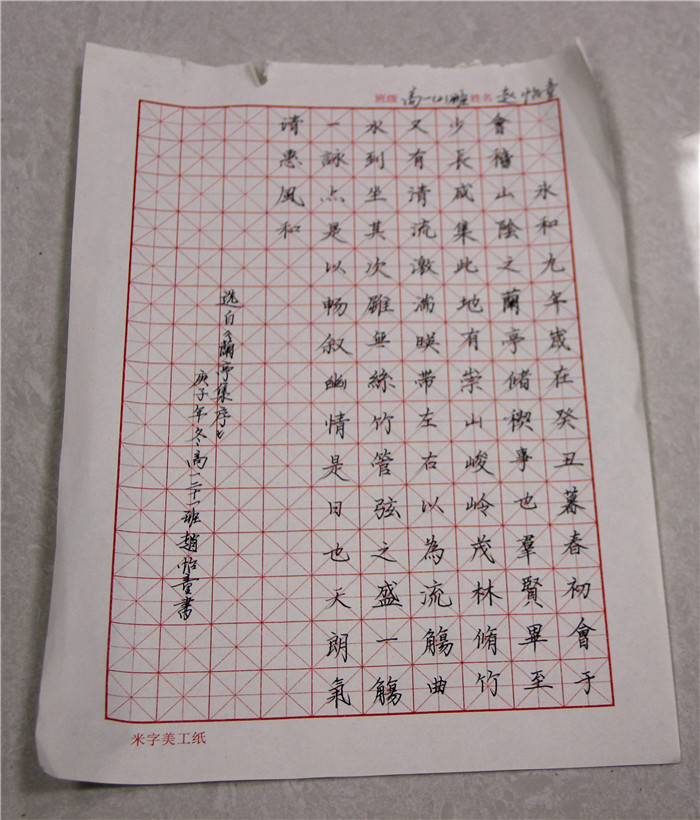 班级 高一(21)班 姓名 赵怡童
永和九年歲在癸丑暮春初會于
會稽山陰之蘭亭脩禊事也羣賢畢至
少長咸集此地有崇山峻岭茂林脩竹
又有清流激湍暎帶左右以為流觴曲
水到坐其次雖無絲竹管弦之盛一觴
一詠点是以畅叙幽情是日也天朗氣
清惠風和
选自《蘭亭集序》
庚子年冬高一二十一班趙怡童書
米字美工纸